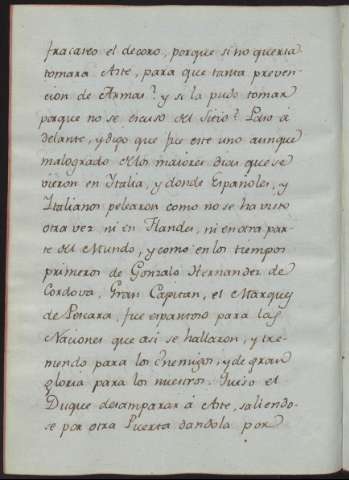 fracateo el decoro, porque si no queria
tomara Aste, para que tanta preven-
cion de Armas? y si la pudo tomar
porque no se escuso del sitio? Paso a
delante, y digo que fue este uno aunque
malogrado delos maiores dias que se
vieron en Italia, y donde Españoles, y
Italianos pelearon como no se ha visto
otra vez ni en Flandes, ni en otra par-
te del Mundo, y como en los tiempos
primeros de Gonzalo Hernandez de
Cordova, Gran Capitan, el Marques
de Pescara, fue espantoso para las
Naciones que asi se hallaron, y tre-
mendo para los enemigos, y de gran
gloria para los nuestros. Quiso el
Duque desamparar á Aste, saliendo-
se por otra Puerta dandola por